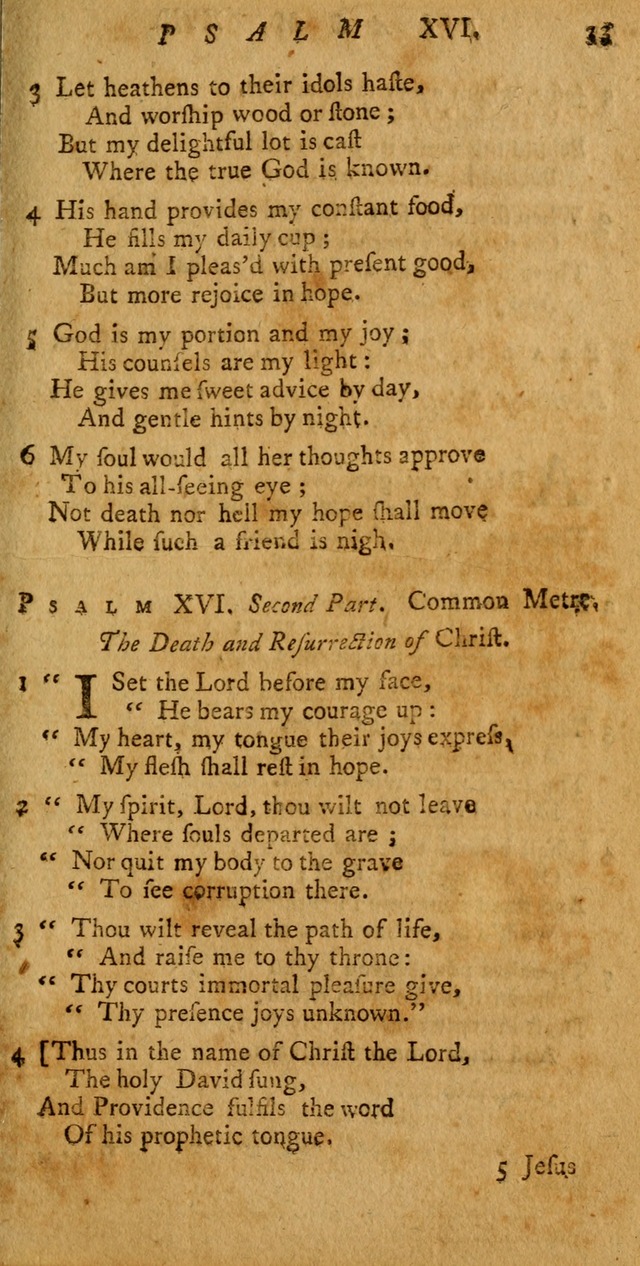 PSALM XVI. 33
3 Let heathens to their idols haſte,
And worſhip wood or ſtone;
But my delightful lot is caſt
Where the true God is known.
4 His hand provides my conſtant food,
He fills my daily cup;
Much am I pleas'd with preſent good,
But more rejoice in hope.
5 God is my portion and my joy;
His counſels are my light:
He gives me ſweet advice by day,
And gentle hints by night.
6 My ſoul would all her thoughts approve
To his all-ſeeing eye;
Not death nor hell my hope ſhall move
While ſuch a friend is nigh.
PSALM XVI. Second Part. Common Metre.
The Death and Reſurrection of Chriſt.
1 “ I Set the Lord before my face,
“ He bears my courage up:
“ My heart, my tongue their joys expreſs,
“ My fleſh ſhall reſt in hope.
2 “ My ſpirit, Lord, thou wilt not leave
“ Where ſouls departed are;
“ Nor quit my body to the grave
“ To ſee corruption there.
3 “ Thou wilt reveal the path of life,
“ And raiſe me to thy throne:
“ Thy courts immortal pleaſure give,
“ Thy preſence joys unknown.”
4 [Thus in the name of Chriſt the Lord,
The holy David ſung,
And Providence fulfils the word
Of his prophetic tongue.
5 Jeſus